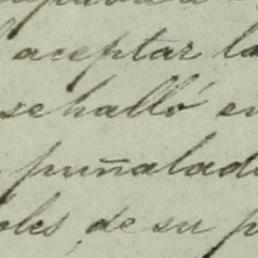 aceptar la
se halló en
puñalada
de su p